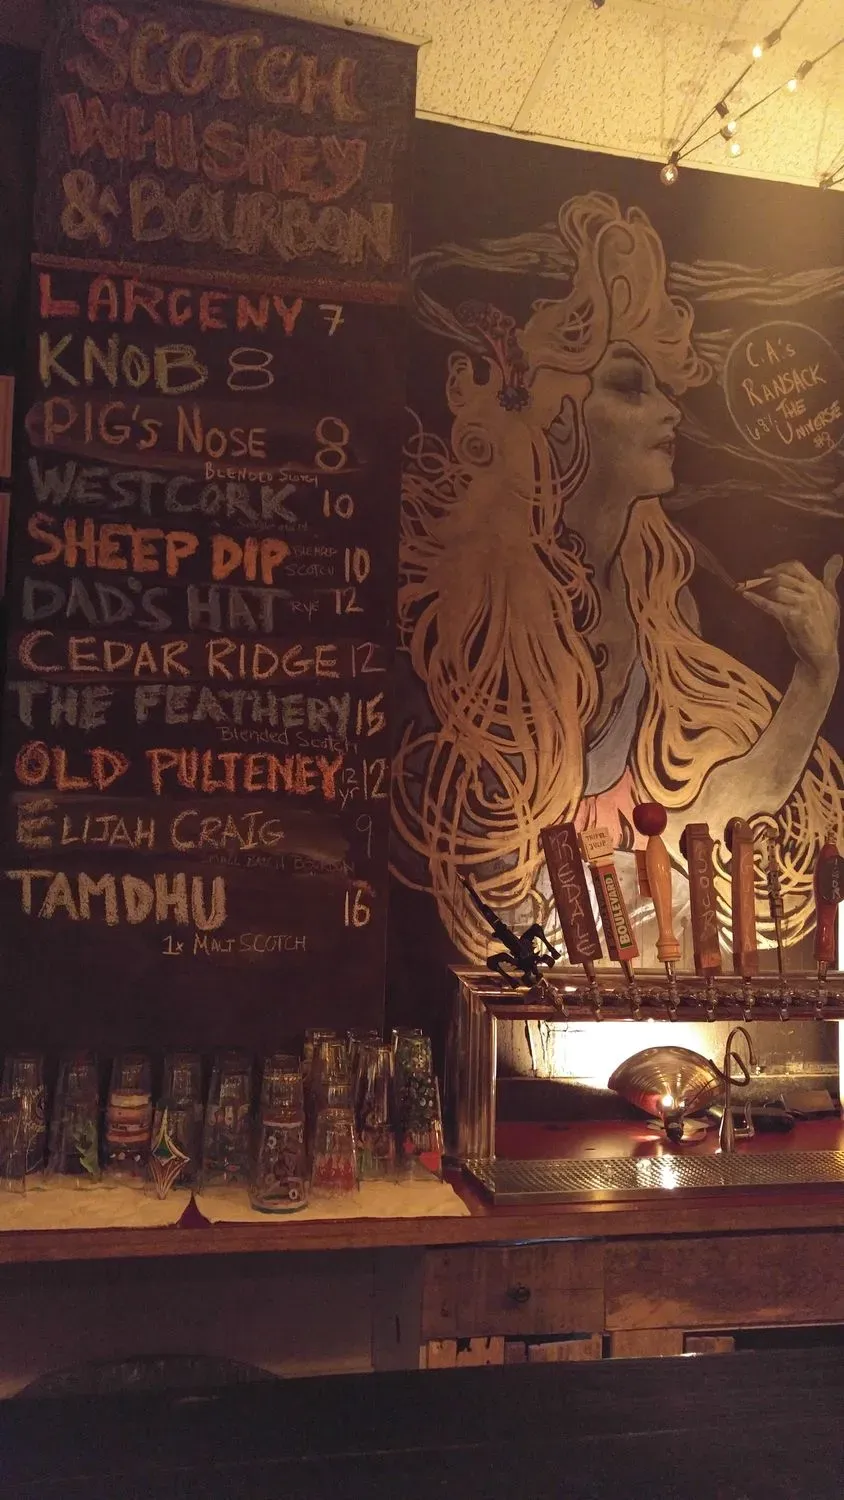 SCOTCH
WHISKEY
& BOURBON
LARCENY 7
KNOB 8
PIG'S NOSE 8
BLENDED SCOTCH
WESTCORK 10
SHEEP DIP BLENDED SCOTCH 10
DAD'S HAT RYE 12
CEDAR RIDGE 12
THE FEATHERY 15
Blended Scotch
OLD PULTENEY 12 yr 12
ELIJAH CRAIG 9
SMALL BATCH BOURBON
TAMDHU 16
1x MALT SCOTCH
C.A's
RANSACK
6.8% THE
UNIVERSE
$8
RED ALE
BOULEVARD
SOUR